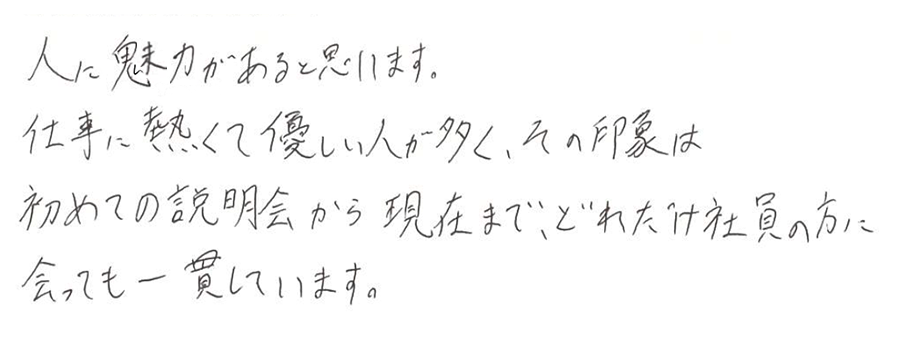 人に魅力があると思います。
仕事に熱くて優しい人が多く、その印象は
初めての説明会から現在まで、どれだけ社員の方に
会っても一貫しています。